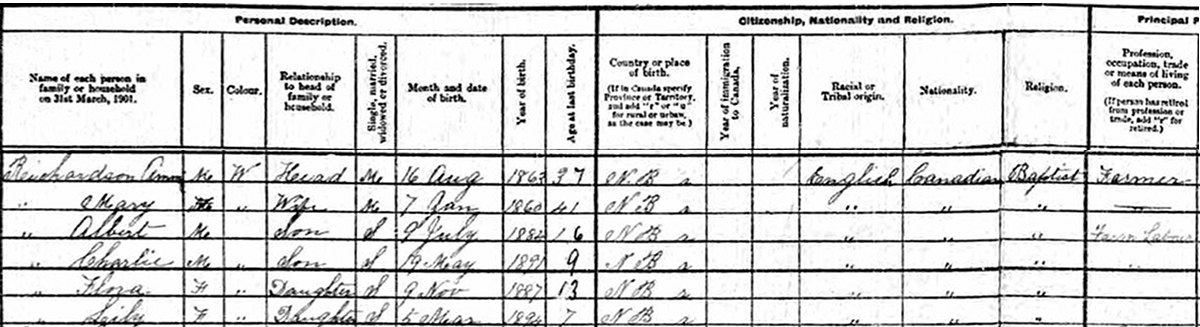 Personal Description. Citizenship, Nationality and Religion. Principal P
Name of each person in family or household on 31st March, 1901. Sex. Colour. Relationship to head of family or household. Single, married, widowed or divorced. Month and date of birth. Year of birth. Age at last birthday. Country or place of birth. (If in Canada specify Province or Territory, and add "r" or "u" for rural or urban, as the case may be.) Year of immigration to Canada. Year of naturalization. Racial or Tribal origin. Nationality. Religion. Profession, occupation, trade or means of living of each person. (If person has retired from profession or trade, add "r" for retired.)
Reichardson M W Head M 16 Aug 1863 37 N.B r English Canadian Baptist Farmer
" Mary F " Wife M 7 Jan 1860 41 N B r " " "
" Albert M Son S 9 July 1884 16 N B r " " " Farm Labour
" Charlie M " Son S 19 May 1891 9 N B r " " "
" Flora F " Daughter S 9 Nov 1887 13 N B r " " "
" F " Daughter S 5 Mar 1894 7 N B r " " "